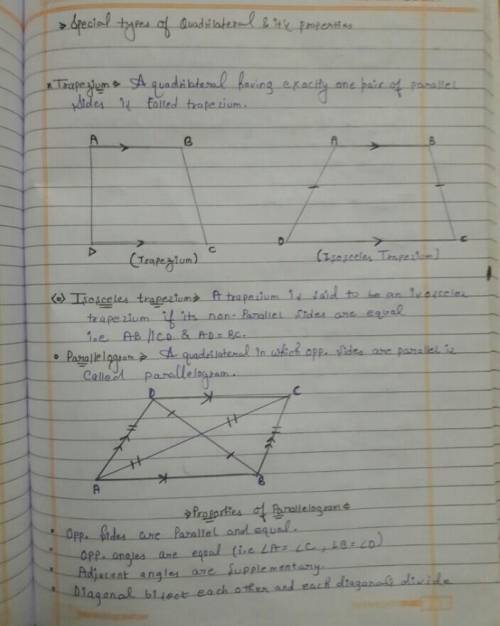 Special types of Quadrilateral & it's properties
Trapezium A quadrilateral having exactly one pair of parallel
sides is called trapezium.
A B A B
D C D C
(Trapezium) (Isosceles Trapezium)
(o) Isosceles trapezium A trapezium is said to be an isosceles
trapezium if its non-Parallel sides are equal
i.e AB//CD & AD=BC.
Parallelogram A quadrilateral in which opp. sides are parallel is
called parallelogram.
D C
A B
Properties of Parallelogram
• Opp. sides are Parallel and equal.
• Opp. angles are equal (i.e ∠A=∠C, ∠B=∠D)
• Adjacent angles are supplementary.
• Diagonal bisect each other and each diagonals divide